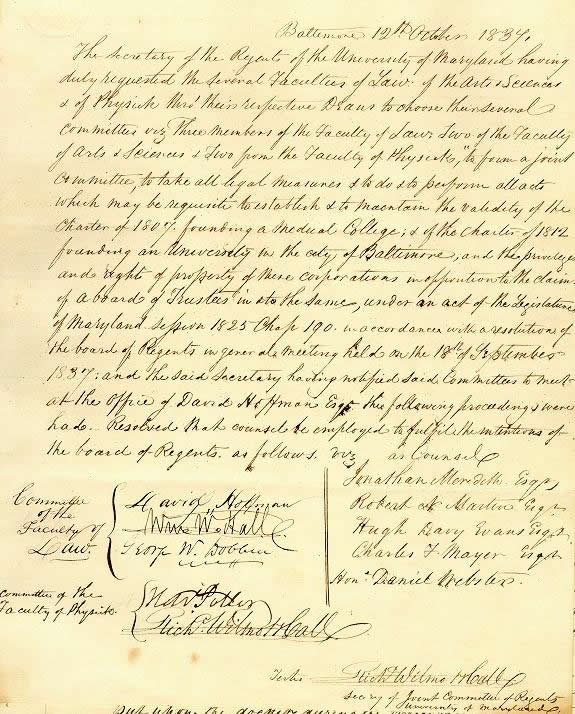 Baltimore 12th October 1837.
The Secretary of the Regents of the University of Maryland having
duly requested the several Faculties of Law. of the Arts & Sciences
& of Physick thro' their respective Deans to choose their several
committees viz Three members of the Faculty of Law; Two of the Faculty
of Arts & Sciences & Two from the Faculty of Physick, "to form a joint
Committee, to take all legal measures & to do & to perform all acts
which may be requisite to establish & to maintain the validity of the
Charter of 1807. founding a Medical College; & of the Charter of 1812
founding an University in the city of Baltimore; and the privileges
and right of property of these corporations in opposition to the claim
of a board of Trustees in & to the same, under an act of the Legislature
of Maryland session 1825 Chap 190. in accordance with a resolution of
the board of Regents in general meeting held on the 18th of September
1837: and the said Secretary having notified said Committees to meet
at the Office of David Hoffman Esqr. the following proceedings were
had. Resolved that counsel be employed to fulfil the intentions of
the board of Regents. as follows. viz
as Counsel
Jonathan Meredith Esqr,
Robert N Martin Esqr
Hugh Davy Evans Esqr
Charles F Mayer Esqr
Hon. Daniel Webster.
Committee
of the
Faculty of
Law.
David Hoffman
Wm W. Hall
George W. Dobbin
Committee of the
Faculty of Physick.
Nat. Potter
Richd. Wilmot Hall
Teste Richd Wilmot Hall
Secry of Joint Committee of Regents
University of Maryland
But upon the